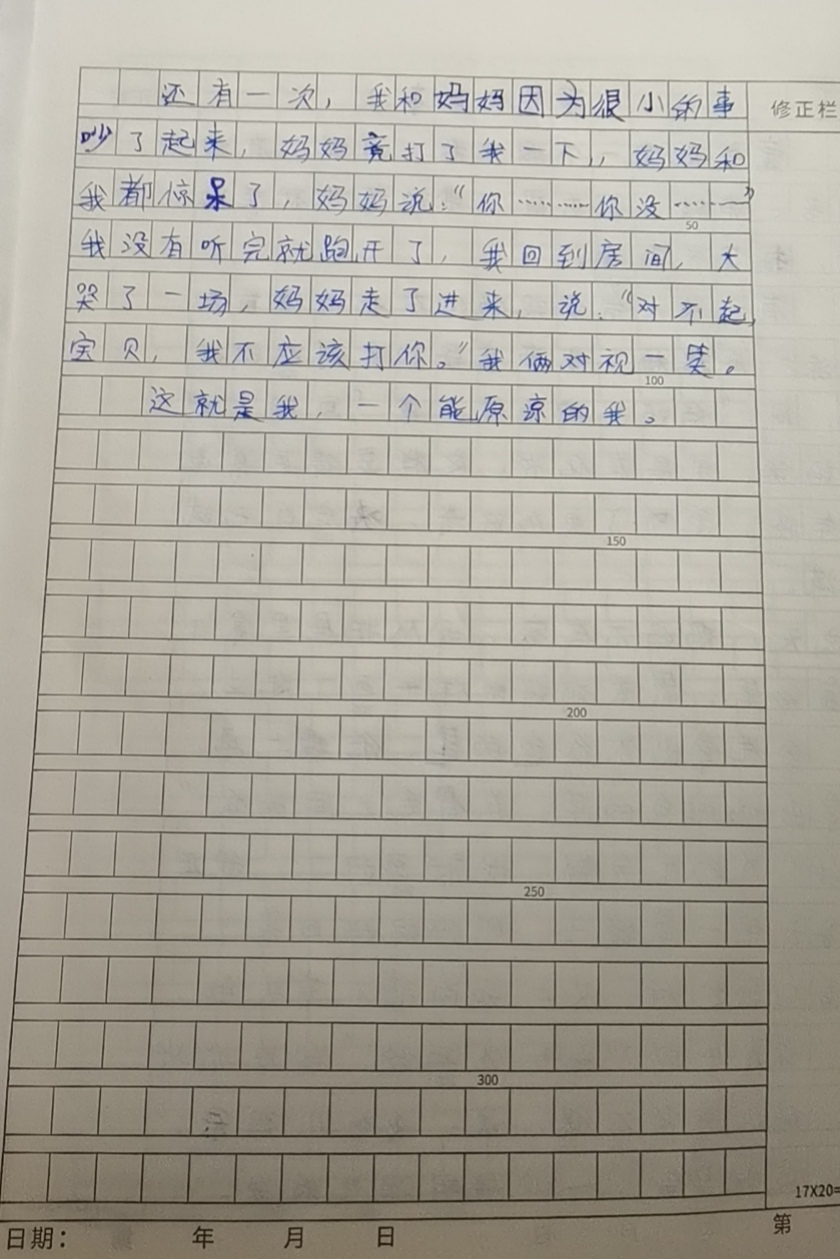 还有一次，我和妈妈因为很小的事
修正栏
吵了起来，妈妈竟打了我一下，妈妈和
我都惊呆了，妈妈说：“你…………你没…………”
50
我没有听完就跑开了，我回到房间，大
哭了一场，妈妈走了进来，说：“对不起，
宝贝，我不应该打你。”我俩对视一笑。
100
这就是我，一个能原谅的我。
150
200
250
300
17X20=
日期： 年 月 日
第